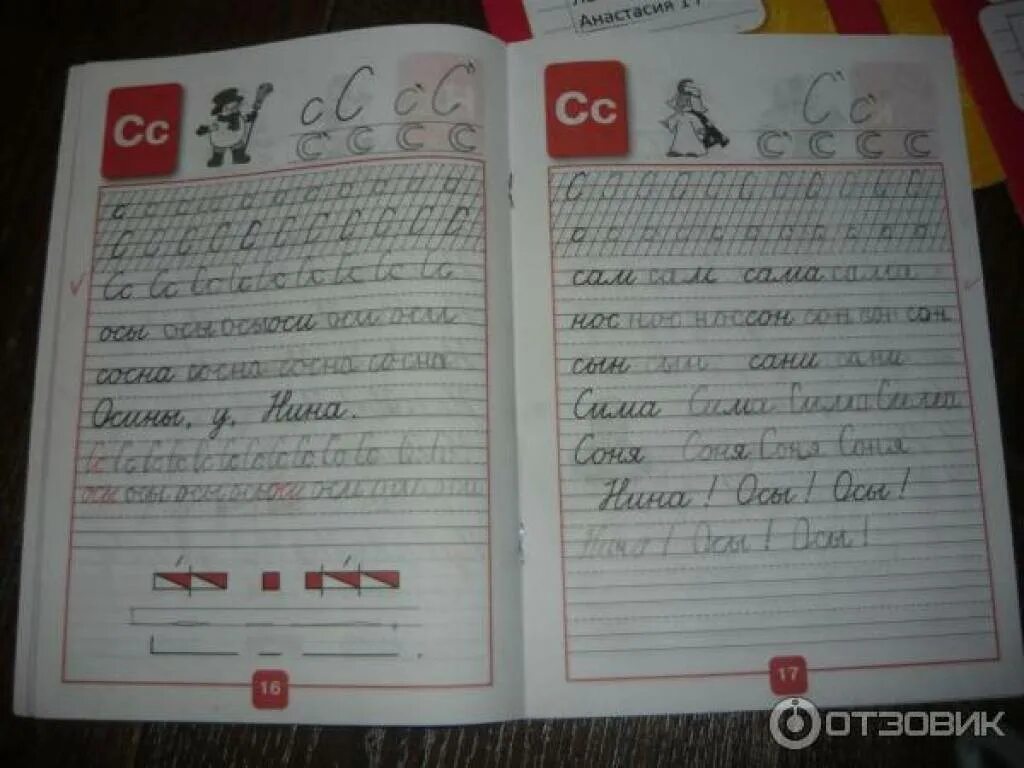 Анастасия 17
Сс
с С с С
С С С С
с с с с с с с с с с с
С С С С С С С С С С С
Сс Сс Сс Сс Сс Сс Сс Сс
осы осы осы оси оси оси
сосна сосна сосна сосна
Осины, у, Нина.
Сс Сс Сс Сс Сс Сс Сс Сс Сс Сс
осы осы осы осы оси оси оси оси
16
Сс
С с
С С С С
С С С С С С С С С С С
с с с с с с с с с с с
сам сам сама сама
нос нос нос сон сон сон сон
сын сын сани сани
Сима Сима Сима Сима
Соня Соня Соня Соня
Нина! Осы! Осы!
Нина! Осы! Осы!
17
ОТЗОВИК